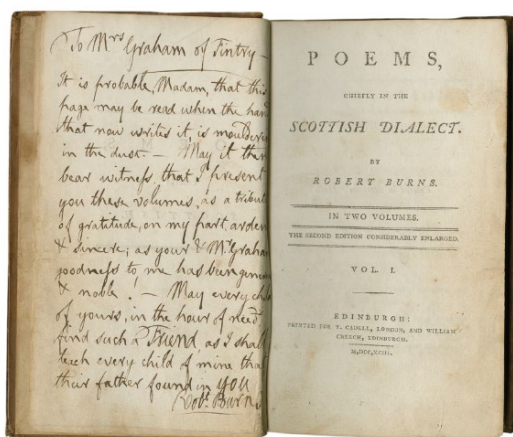 To Mrs Graham of Fintry —
It is probable, Madam, that this
page may be read when the hand
that now writes it, is mouldering
in the dust. — May it then
bear witness that I present
you these volumes, as a tribute
of gratitude, on my part, ardent
& sincere; as your & Mr Graham's
goodness to me has been generous
& noble. — May every child
of yours, in the hour of need,
find such a Friend, as I shall
teach every child of mine that
their father found in you.
Robt Burns
POEMS,
CHIEFLY IN THE
SCOTTISH DIALECT.
BY
ROBERT BURNS.
IN TWO VOLUMES.
THE SECOND EDITION CONSIDERABLY ENLARGED.
VOL. I.
EDINBURGH:
PRINTED FOR T. CADELL, LONDON, AND WILLIAM
CREECH, EDINBURGH.
M,DCC,XCIII.